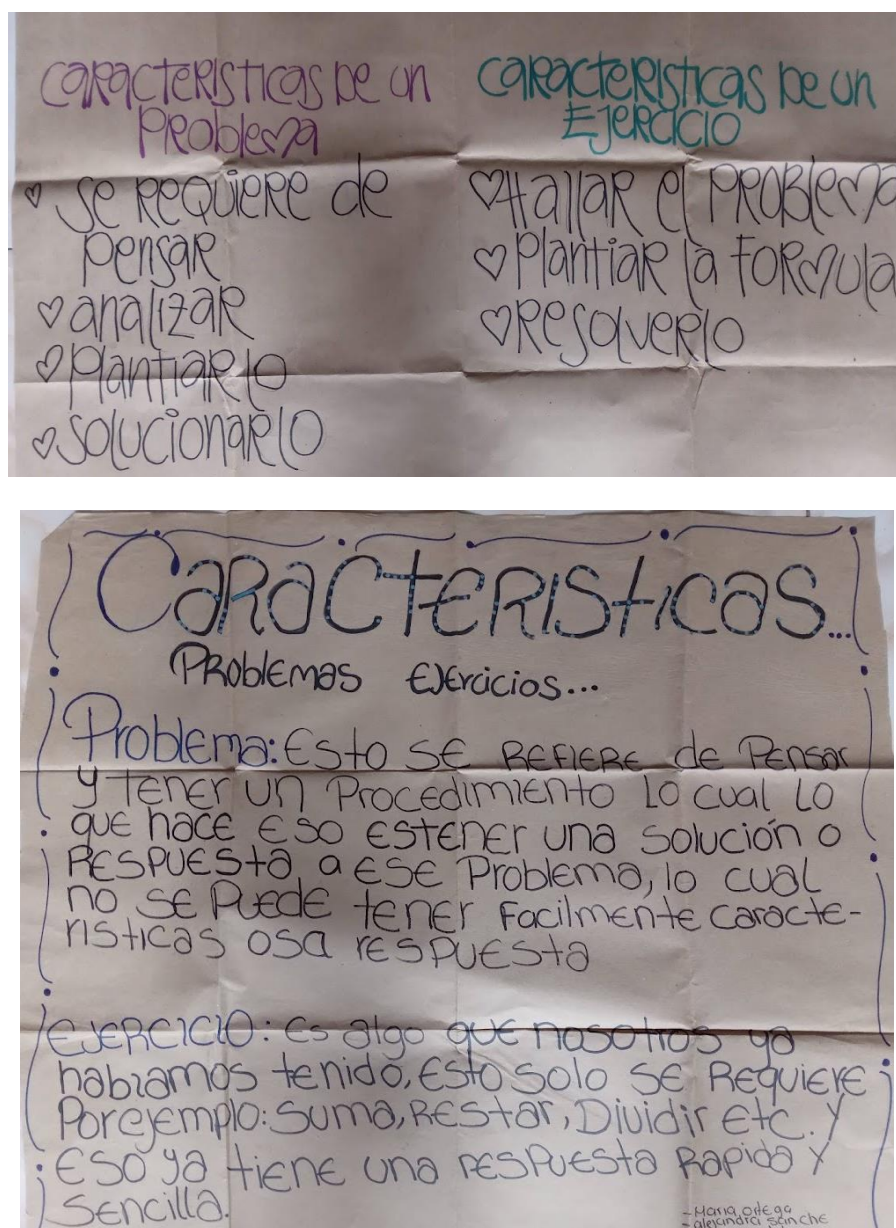 CARACTERISTICAS DE UN
PROBLEMA
SE REQUIERE de
Pensar
analizar
Plantiarlo
Solucionarlo
CARACTERISTICAS DE UN
EJERCICIO
Hallar el PROBLEMA
Plantiar la FORMULA
RESOLVERLO
CARACTERISTICAS...
PROBLEMAS EJERCICIOS...
Problema: Esto SE REFIERE de Pensar
y TENER un Procedimiento lo cual lo
que hace Eso estener una Solución o
RESPUESTA a ESE Problema, lo cual
no SE PUEDE tener Facilmente caracte-
risticas osa rESPUESTA
EJERCICIO: Es algo que nosotros ya
habiamos tenido, Esto solo SE Requiere
Porejemplo: Suma, REStar, Dividir Etc. Y
ESO ya tiene una rESPUESTA Rapida Y
Sencilla.
-Maria ortega
-alejandra sanche